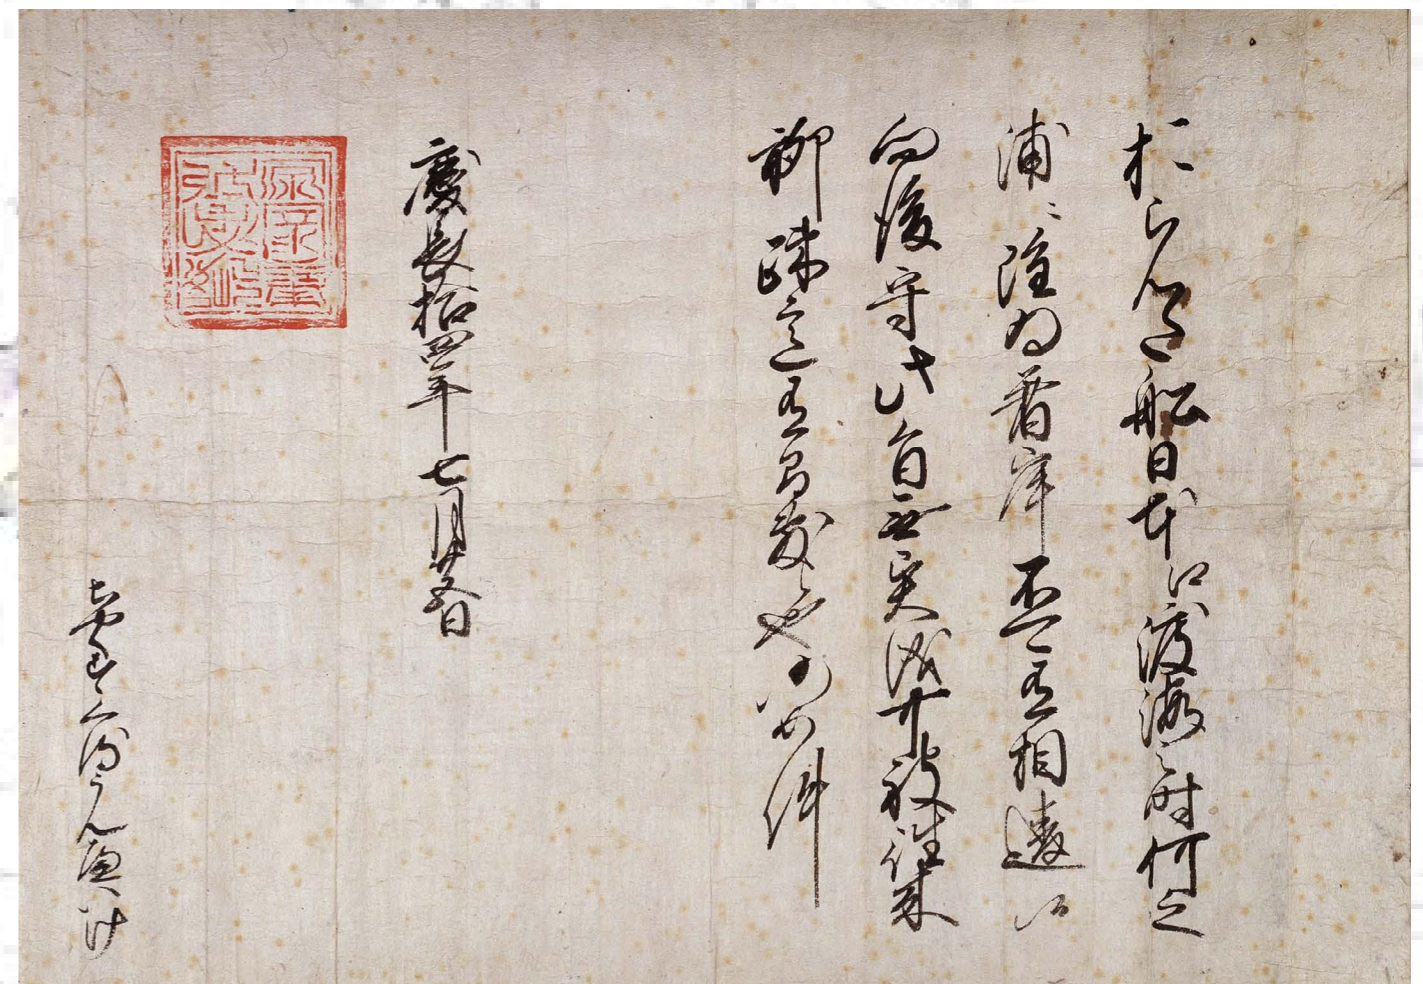 おらんだ船日本江渡海之時何之
浦々雖為着岸不可有相違候
向後守此旨無異儀可被往来
聊疎意有間敷候也仍如件
慶長拾四年七月廿五日
ちやくすくるうんへいけ